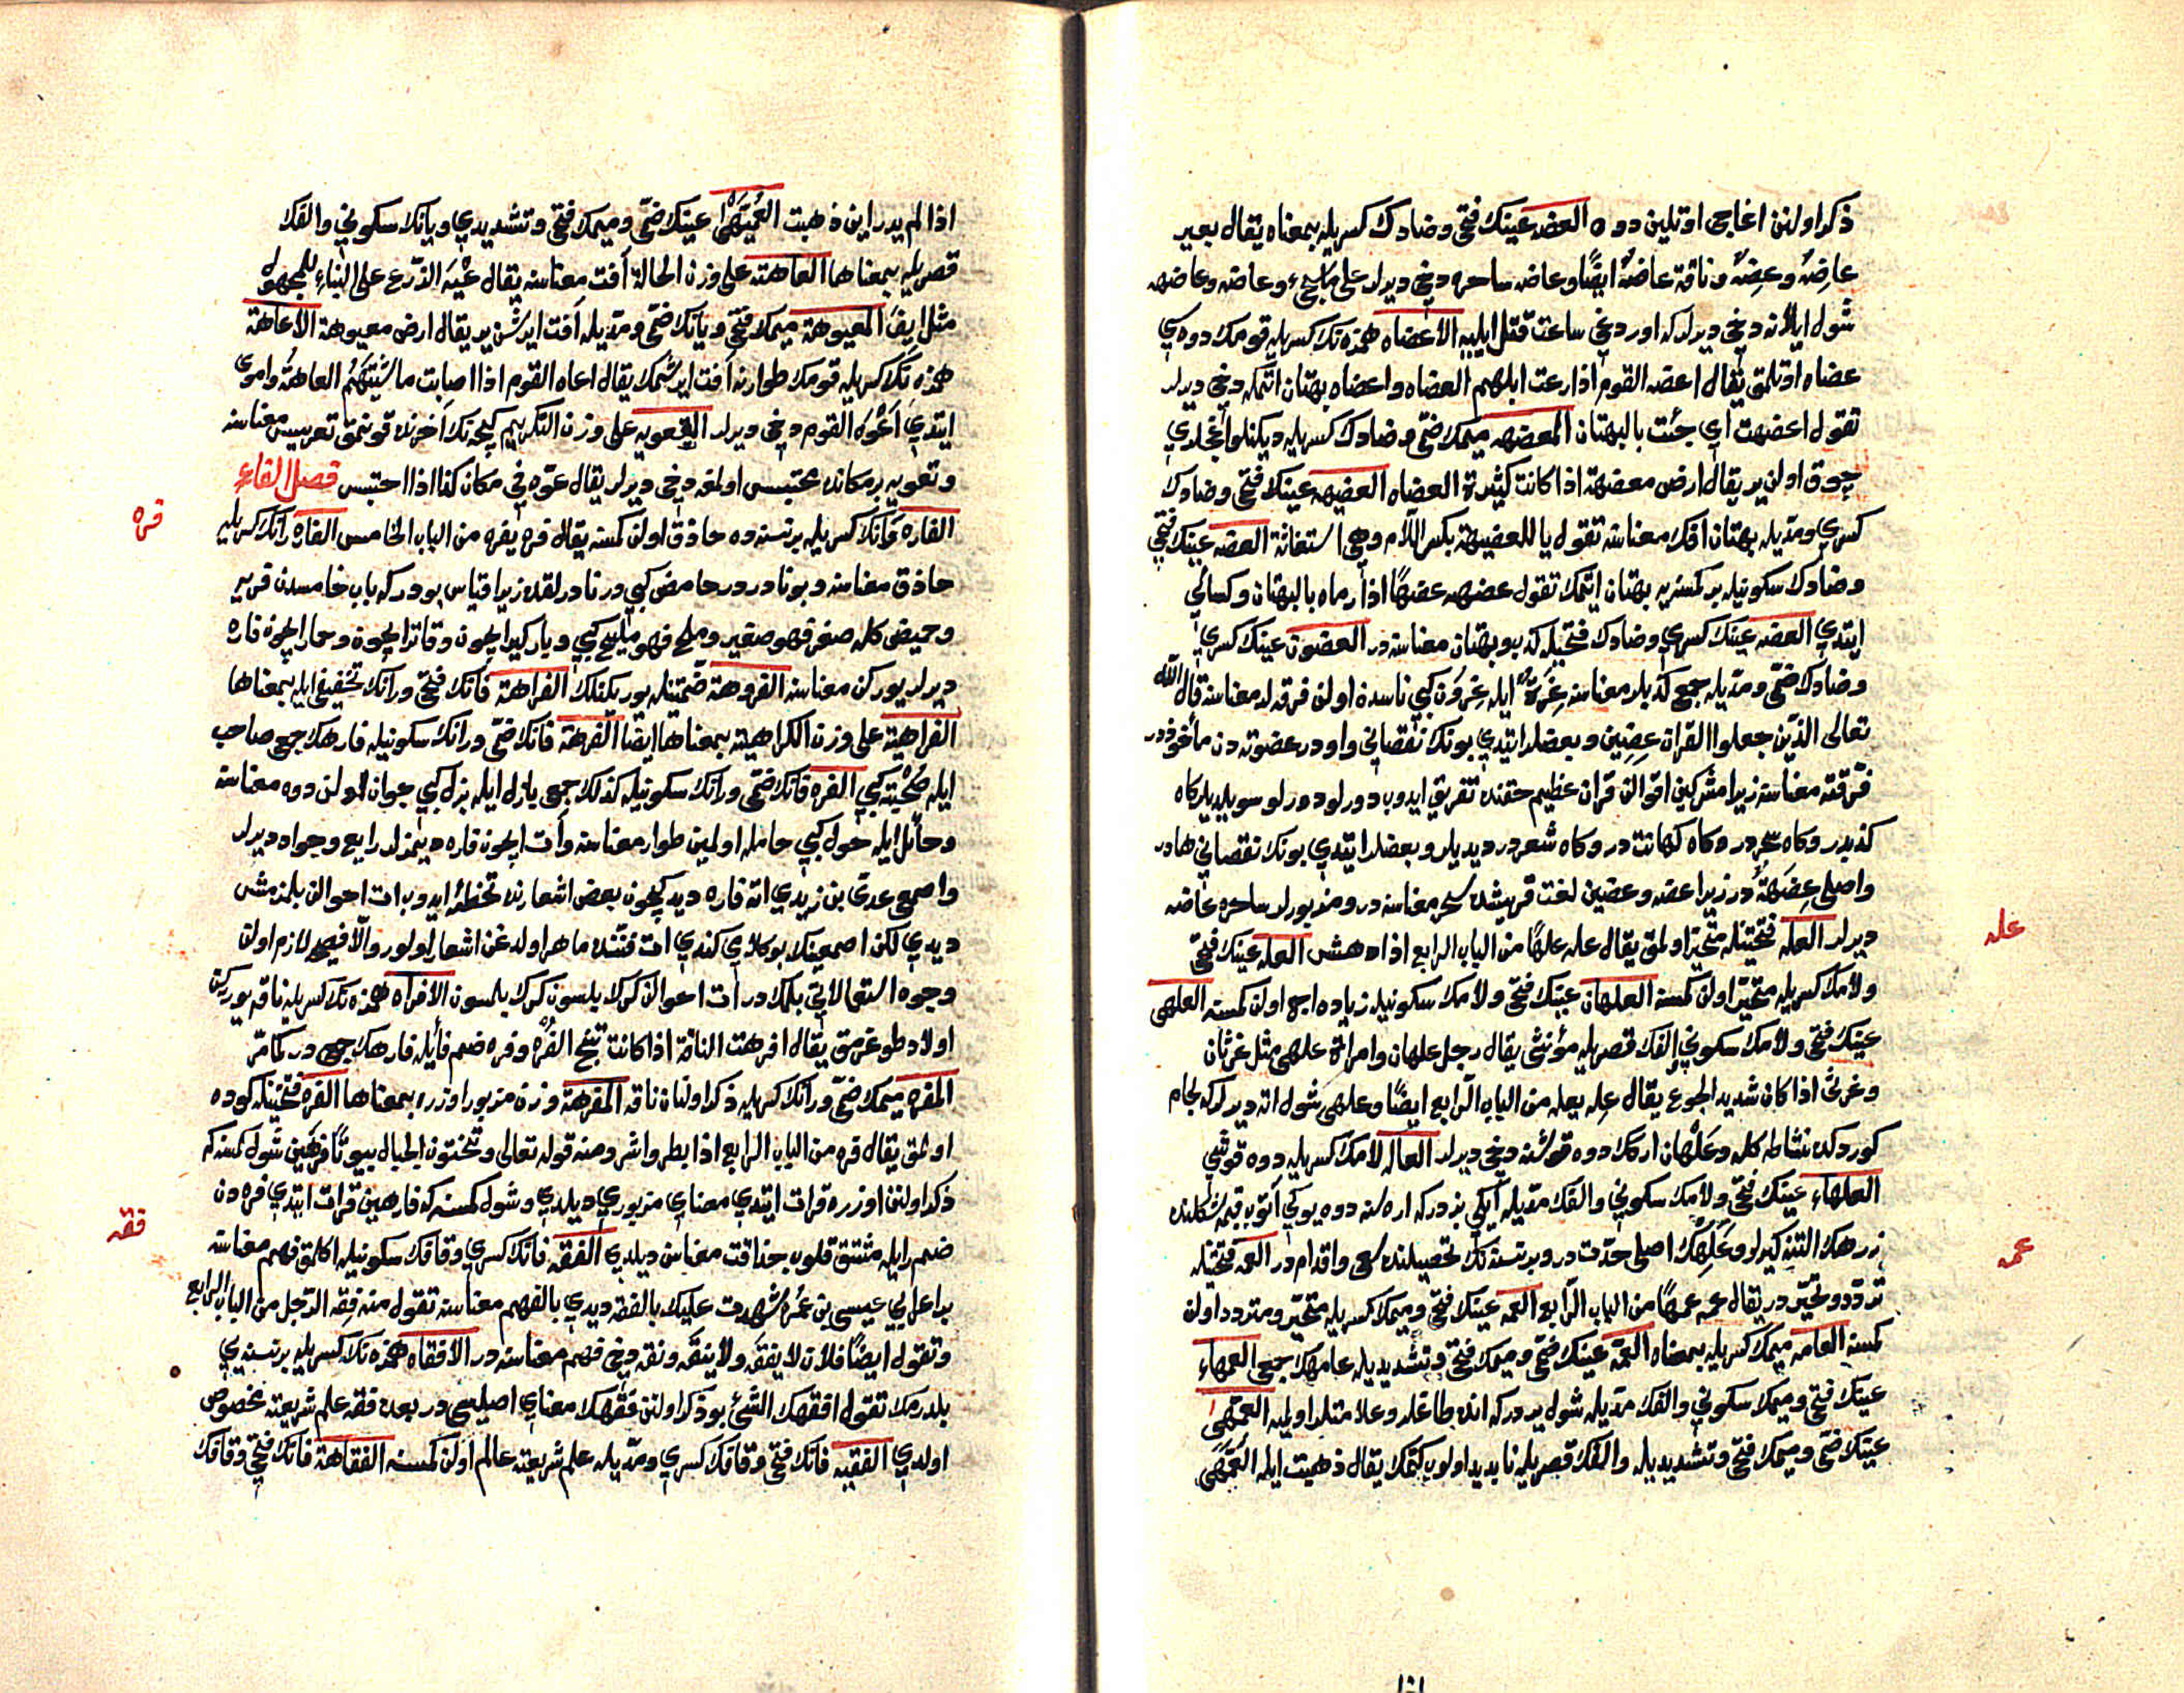 ذكر اولنن اغاجى اوتلين دوه العضه عينك فتحى وضادك كسريله بمعناه يقال بعير
عاضهٌ وعضهٌ وناقة عاضهٌ ايضًا وعاضه ساحره دخى ديرلر على ما يجيء وعاضه وعاضهه
شول ايلانه دخى ديرلر كه اوردغى ساعت قتل ايليه الاعضاه همزه نك كسريله قومك دوه سى
عضاه اوتلمق يقال اعضه القوم اذا رعت ابلهم العضاه واعضاه بهتان اتمكه دخى ديرلر
تقول اعضهت اى جئت بالبهتان المعضهه ميمك ضمى وضادك كسريله ديكنلو اغاجلرى
چوق اولن ير يقال ارض معضهة اذا كانت كثيرة العضاه العضيهه عينك فتحى وضادك
كسرى ومديله بهتان افك معناسنه تقول يا للعضيهة بكسر اللام وهى استغاثة العضه عينك فتحى
وضادك سكونيله بر كمسنه يه بهتان ايتمك تقول عضهه عضهًا اذا رماه بالبهتان وكسائى
ايتدى العضه عينك كسرى وضادك فتحيله كذب وبهتان معناسنه در العضون عينك كسرى
وضادك ضمى ومديله جمع كذبلر معناسنه عزةٌ ايله عزون كبى ناسدن اولن فرقه لر معناسنه قال الله
تعالى الذين جعلوا القران عضين وبعضلر ايتدى بونك نقصانى واودر عضوته دن مأخوذدر
فرقته معناسنه زيرا مشركين اقوالن قران عظيم حقنده تفريق ايدوب دورلو دورلو سويلديلر كاه
كذبدر وكاه سحردر وكاه كهانتدر وكاه شعردر ديديلر وبعضلر ايتدى بونك نقصانى هادر
واصلى عضهةٌ در زيرا عضه وعضين لغت قريشده سحر معناسنه در ومزبورلر ساحره عاضه
ديرلر العله فتحتينله متحير اولمق يقال عله علهًا من الباب الرابع اذا دهش العله عينك فتحى
ولامك كسريله متحير اولن كمسنه العلهان عينك فتحى ولامك سكونيله زياده اج اولن كمسنه العلهى
عينك فتحى ولامك سكونى الفك قصريله مؤنثى يقال رجل علهان وامراة علهى مثل غرثان
وغرثى اذا كان شديد الجوع يقال عله يعله من الباب الرابع ايضًا وعلهى شول اته ديرلر كه لجام
كوردكده نشاطه كله وعلهان اركك دوه قوشنه دخى ديرلر العاله لامك كسريله دوه قوشى
العلهاء عينك فتحى ولامك سكونى والفك مديله ايكى بزدر كه ارەلرنه دوه يوكى آتوب قيمك كلنده
زرهك التنه كيرلر وعلهك اصلى حدتدر وبر نسنه نك تحصيلنده سعى واقدامدر العمه فتحتينله
تردد وتحيردر يقال عمه عمهًا من الباب الرابع العمه عينك فتحى وميمك كسريله متحير ومتردد اولن
كمسنه العامه ميمك كسريله بمعناه العمه عينك ضمى وميمك فتحى وتشديديله عامهك جمعى العمهاء
عينك فتحى وميمك سكونى والفك مديله شول يردر كه انده طاغلر وعلامتلر اولميه العمهى
عينك ضمى وميمك فتحى وتشديديله والفك قصريله نابديد اولوب كتمك يقال ذهبت ابله العمهى
عله
عمه
اذا لم يدر اين ذهبت العميهى عينك ضمى وميمك فتحى وتشديدى ويانك سكونى والفك
قصريله بمعناها العاهة على وزن الحالة آفت معناسنه يقال عيه الزرع على البناء للمجهول
مثل ايف المعيوهة ميمك فتحى ويانك ضمى ومديله آفت ايرشن ير يقال ارض معيوهة الاعاهة
همزه نك كسريله قومك طوارينه آفت ايرشمك يقال اعاه القوم اذا اصابت ماشيتهم العاهة واموى
ايتدى اعوه القوم دخى ديرلر التعويه على وزن التكريم كيجه نك آخرنده قونمق تعريس معناسنه
وتعويه بر مكانده محتبس اولمغه دخى ديرلر يقال عوه فى مكان كذا اذا احتبس فصل الفاء
الفاره رانك كسريله بر نسنه ده حاذق اولن كمسنه يقال فره يفره من الباب الخامس الفاره رانك كسريله
حاذق معناسنه وبو نادردر حامض كبى در نادر لغتدر زيرا قياس بودر كه باب خامسدن فريه
وحميض كله صغر فهو صغير وملح فهو مليح كبى ويارگير ايچون وقاتر ايچون وحمار ايچون فاره
ديرلر يوركن معناسنه الفروهة ضمتينله يوريكنلك الفراهة فانك فتحى ورانك تخفيفى ايله بمعناها
الفراهية على وزن الكراهية بمعناها ايضًا الفرهة فانك ضمى ورانك سكونيله فارهك جمعى صاحب
ايله صحبة كبى الفره فانك ضمى ورانك سكونيله كذلك جمعى بازل ايله بزل كبى جوان اولن دوه معناسنه
وحائل ايله حول كبى حامله اولمين طوار معناسنه وآت ايچون فاره دينمز لر رايع وجواد ديرلر
واصمعى عدى بن زيدى اته فاره ديديكيچون بعض اشعارنده تخطئه ايدوب ات احوالن بلمزمش
ديدى لكن اصمعينك بو كلامى كندى ات فننده ماهر اولدغن اشعار اولور والا فصيحه لازم اولن
وجوه استعمالاتى بلمكدر آت احوالن كرك بلسون كرك بلمسون الافراه همزه نك كسريله ناقه يوركن
اولاد طوغرمق يقال افرهت الناقة اذا كانت تنتج الفره وفره ضم فائله فارهك جمعى در كما مر
المفره ميمك ضمى ورانك كسريله ذكر اولنان ناقه المفرهة وزن مزبور اوزره بمعناها الفره فتحتينله كوده
اولمق يقال فره من الباب الرابع اذا بطر واشر ومنه قوله تعالى وتنحتون الجبال بيوتًا فرهين شول كمسنه كه
ذكر اولنن اوزره قرات ايتدى معناى مزبورى ديلدى وشول كمسنه كه فارهين قرات ايتدى فره دن
ضم را ايله مشتق قلوب حذاقت معناسن ديلدى الفقه فانك كسرى وقافك سكونيله اكلمق فهم معناسنه
بر اعرابى عيسى بن عمره شهدت عليك بالفقه ديدى بالفهم معناسنه تقول منه فقه الرجل من الباب الرابع
وتقول ايضًا فلان لا يفقه ولا ينقه ونقه دخى فهم معناسنه در الافقاه همزه نك كسريله بر نسنه يى
بلدرمك تقول افقهتك الشئ بو ذكر اولنن فقهك معناى اصليسى در بعده فقه علم شريعته مخصوص
اولدى الفقيه فانك فتحى وقافك كسرى ومديله علم شريعته عالم اولن كمسنه الفقاهة فانك فتحى وقافك
فره
فقه